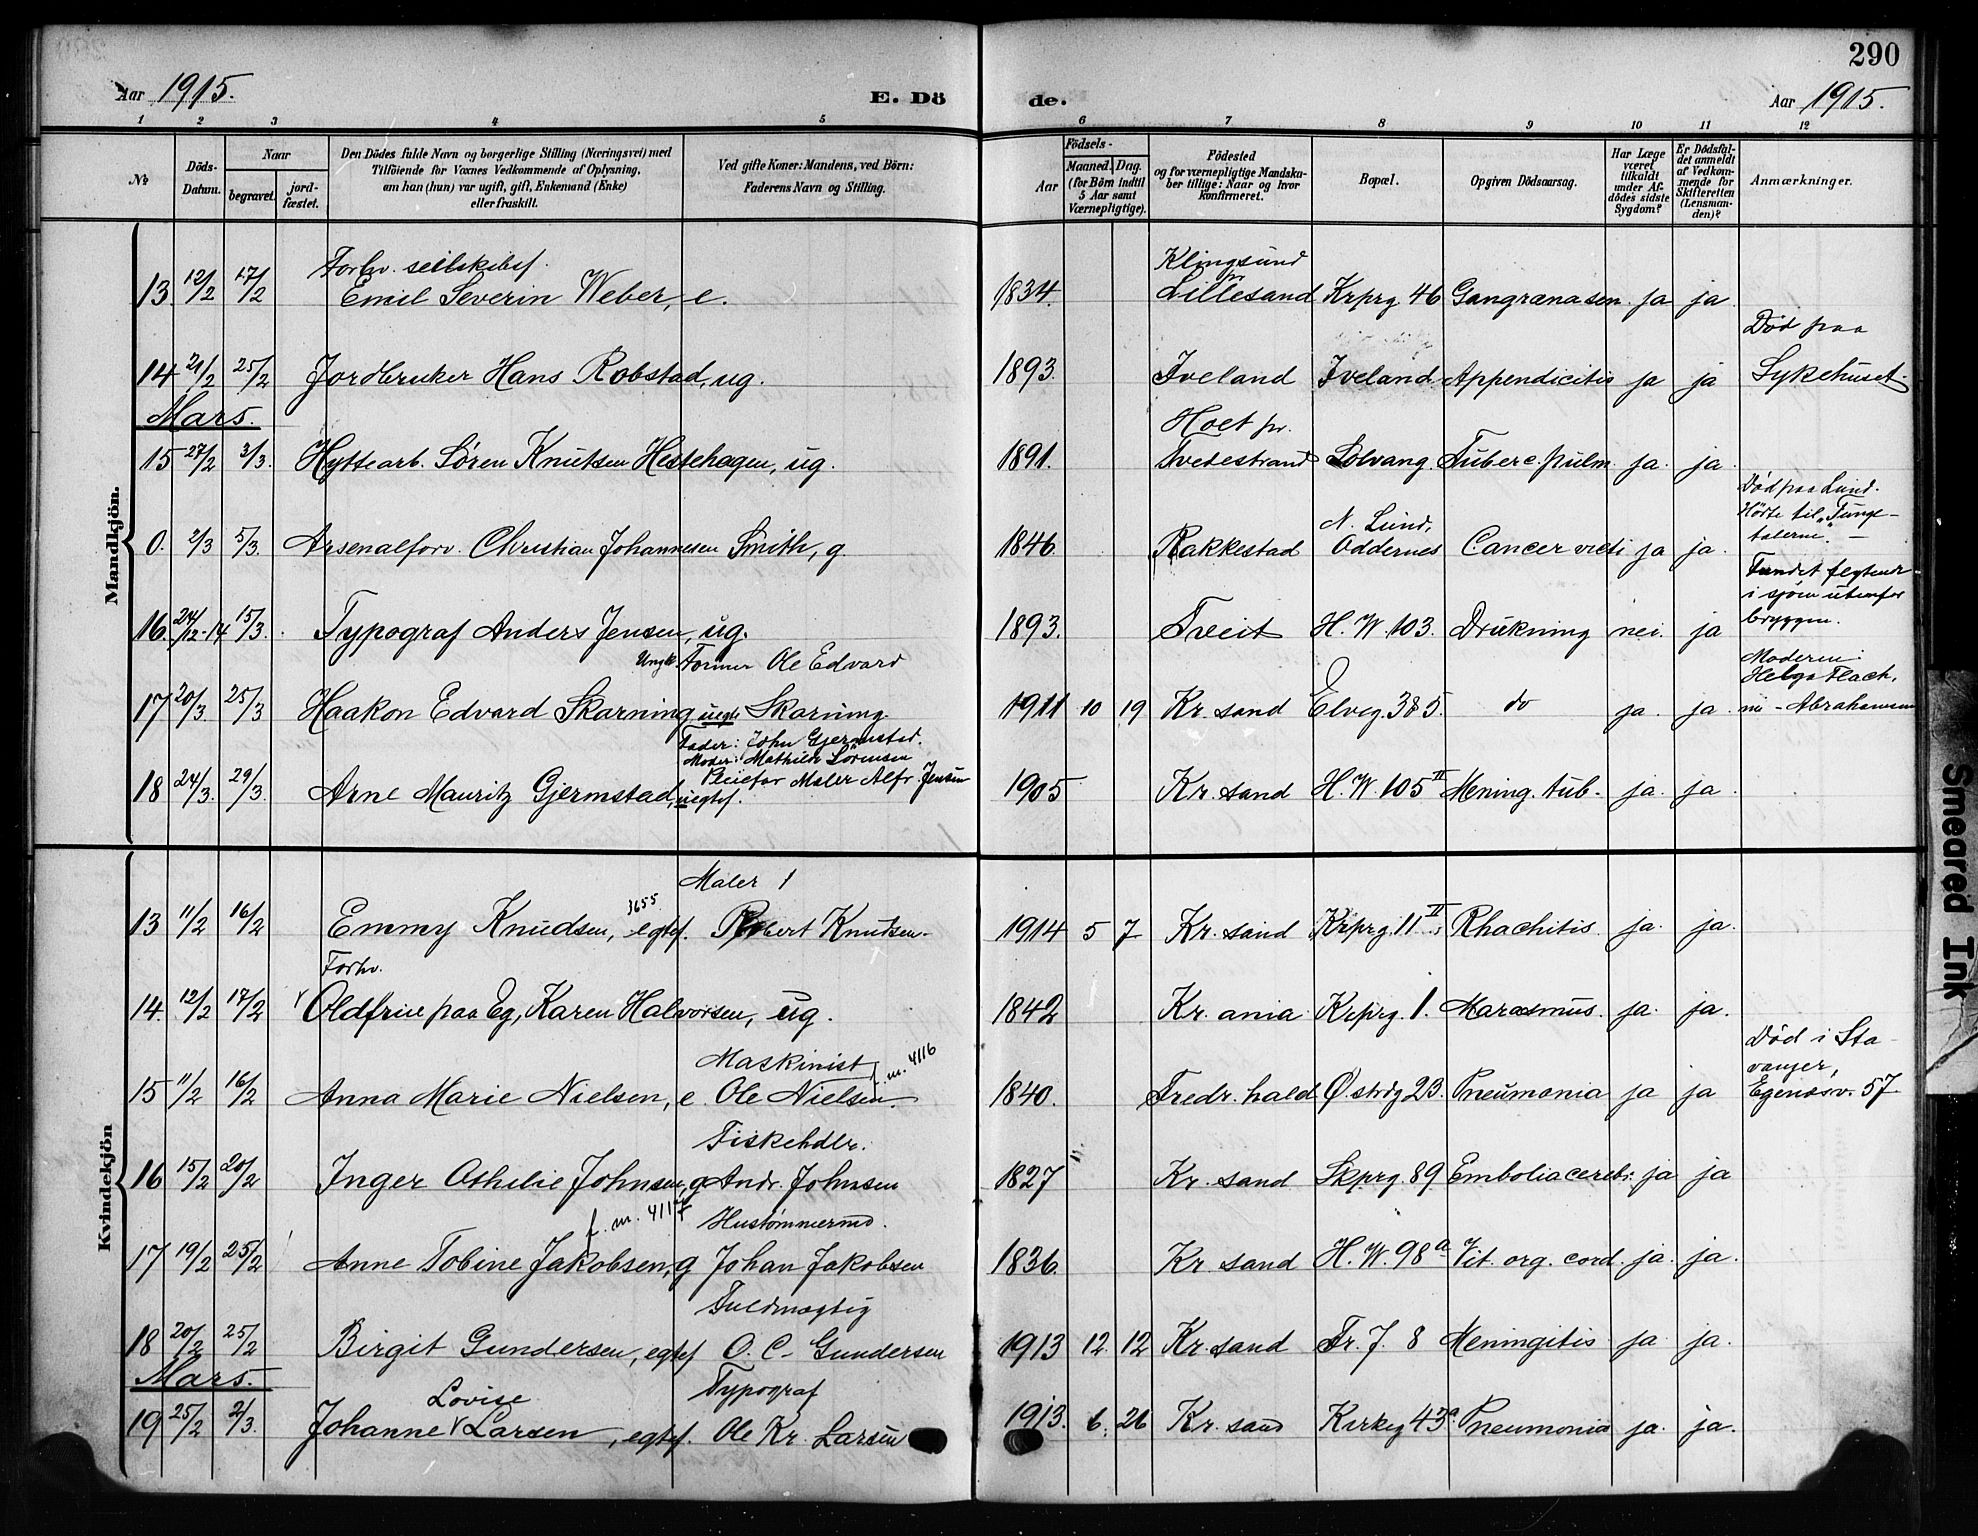 290
Aar 1915.
E. Döde.
Aar 1915.
1 2 3 4 5 6 7 8 9 10 11 12
№
Döds-Datum.
Naar
begravet.
jord-fæstet.
Den Dödes fulde Navn og borgerlige Stilling (Næringsvei) med
Tilföiende for Voxnes Vedkommende af Oplysning,
om han (hun) var ugift, gift, Enkemand (Enke)
eller fraskilt.
Ved gifte Koner: Mandens, ved Börn:
Faderens Navn og Stilling.
Födsels-
Aar
Maaned. Dag.
(for Börn indtil
5 Aar samt
Værnepligtige).
Födested
og for værnepligtige Mandska-
ber tillige: Naar og hvor
konfirmeret.
Bopæl.
Opgiven Dödsaarsag.
Har Læge
været
tilkaldt
under Af-
dödes sidste
Sygdom?
Er Dödsfal-
det anmeldt
af Vedkom-
mende for
Skifteretten
(Lensman-
den)?
Anmærkninger.
Mandkjön.
Forhv. seilskibsf. Klingsund pr
13. 12/2 17/2 Emil Severin Weber, e. 1834. Lillesand Krprg. 46 Gangræna sen. ja ja.
Död paa
14 21/2 25/2 Jordbruker Hans Robstad, ug. 1893. Iveland Iveland Appendicitis ja ja Sykehuset.
Mars.
Hoet pr.
15 27/2 3/3. Hyttearb. Sören Knutsen Hestehagen, ug. 1891. Tvedestrand Solvang. Tuberc. pulm. ja. ja.
Död paa Lund.
N. Lund, Hörte til "Tunge-
0. 2/3 5/3. Arsenalforv. Christian Johannesen Smith, g. 1846. Rakkestad Oddernes Cancer ja ja. talerne". —
Fundet flytende
i sjöen utenfor
16. 24/12-14 15/3. Typograf Anders Jensen, ug. 1893. Tveit H. W. 103. Drukning nei. ja bryggen.
Ungk. Former Ole Edvard
Moderen:
Helga Flach,
17 20/3 25/3 Haakon Edvard Skarning uegte Skarning. 1911 10 19 Kr. sand Elveg. 38 5. do ja. ja. — Abrahamsen
Fader: John Gjermstad.
Moder: Mathilde Sörensen
Pleiefar Maler Alfr. Jensen
18 24/3. 29/3. Arne Mauritz Gjermstad, uegtef. 1905 Kr. sand H. W. 105 II Mening. tub. ja. ja.
Kvindekjön
3655 Maler 1
13 11/2 16/2 Emmy Knudsen, egtef. Robert Knudsen. 1914 5 7 Kr. sand Krprg. 11 II, Rhachitis. ja. ja.
Forhv.
14. 12/2 17/2 Oldfrue paa Eg, Karen Halvorsen, ug. 1842 Kr. ania Krprg. 1. Marasmus. ja. ja.
Maskinist f. m. 4116
Död i Sta-
vanger,
15 11/2 16/2 Anna Marie Nielsen, e. Ole Nielsen. 1840. Fredr. hald Ø. strdg 23. Pneumonia ja ja Egenæsv. 57
Fiskehdlr.
16 15/2 20/2 Inger Othilie Johnsen, g Andr. Johnsen 1827 Kr. sand Skprg. 89 Embolia cerebr. ja ja
f. m. 4117 Hustømmermd.
17 19/2 25/2 Anne Tobine Jakobsen, g Johan Jakobsen 1836. Kr. sand H. W. 98 a Vit. org. cord. ja. ja.
Fuldmægtig
18 20/2 25/2 Birgit Gundersen, egtef O. C. Gundersen 1913 12. 12 Kr. sand Fr. J. 8 Meningitis ja ja.
Mars.
Lovise Typograf
19 25/2 2/3. Johanne Larsen, egtef. Ole Kr. Larsen 1913. 6. 26 Kr. sand Kirkeg 43a Pneumonia ja. ja.
Smeared Ink